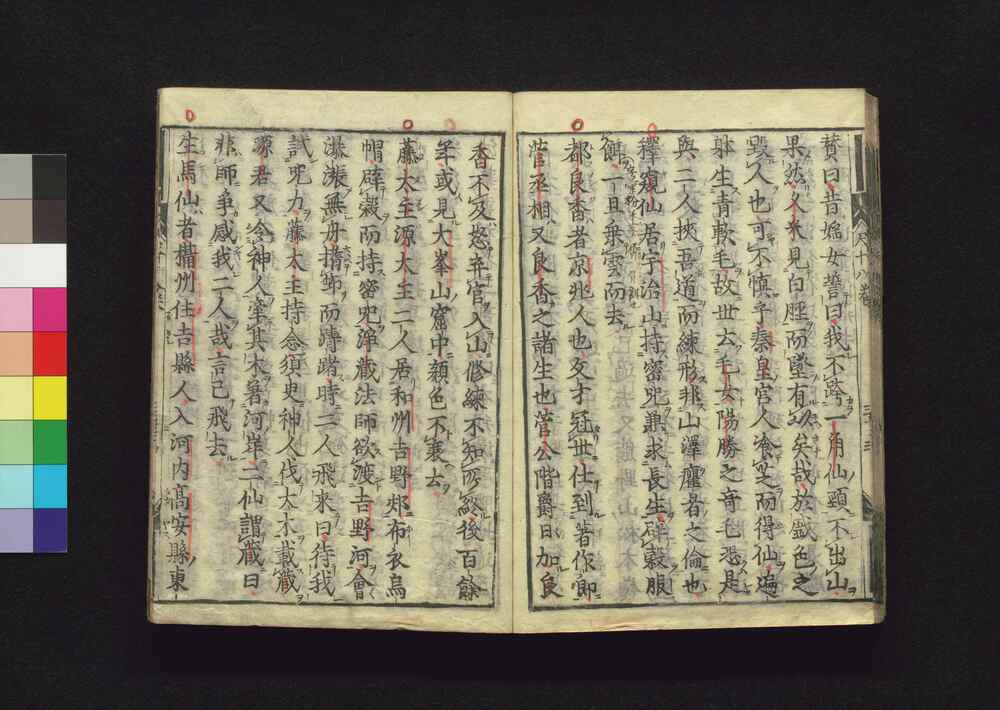 賛曰昔婬女誓曰我不跨一角仙頸不出山
果然久米見白脛而墜有以矣哉於戲色之
毀人也可不慎乎秦皇宮人飡芝而得仙遍
躰生青軟毛故世去毛女陽勝之奇毛恐是
與二人挾吾道而練形非山澤癯者之倫也
釋窺仙居宇治山持密咒兼求長生辟穀服
餌一旦乘雲而去
都良香者京兆人也文才冠世仕到著作郎
菅丞相又良香之諸生也菅公階爵日加良
香不及怒弃官入山修練不知所終後百餘
年或見大峯山窟中顏色不衰去
藤太主源太主二人居和州吉野郡布衣烏
帽辟穀而持密咒渾藏法師欲渡吉野河會
漲漲無舟揖筇而躊躇時二人飛来曰待我
試咒力藤太主持念須臾神人伐大木載藏
源君又令神人牽其木著河岸二仙謂藏曰
非師爭感我二人哉言已飛去
生馬仙者攝州住吉縣人入河内高安縣東